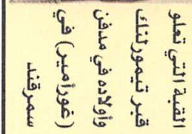 القبة التي تعلو
قبر تيمورلنك
وأولاده في مدفن
(غورامير) في
سمرقند